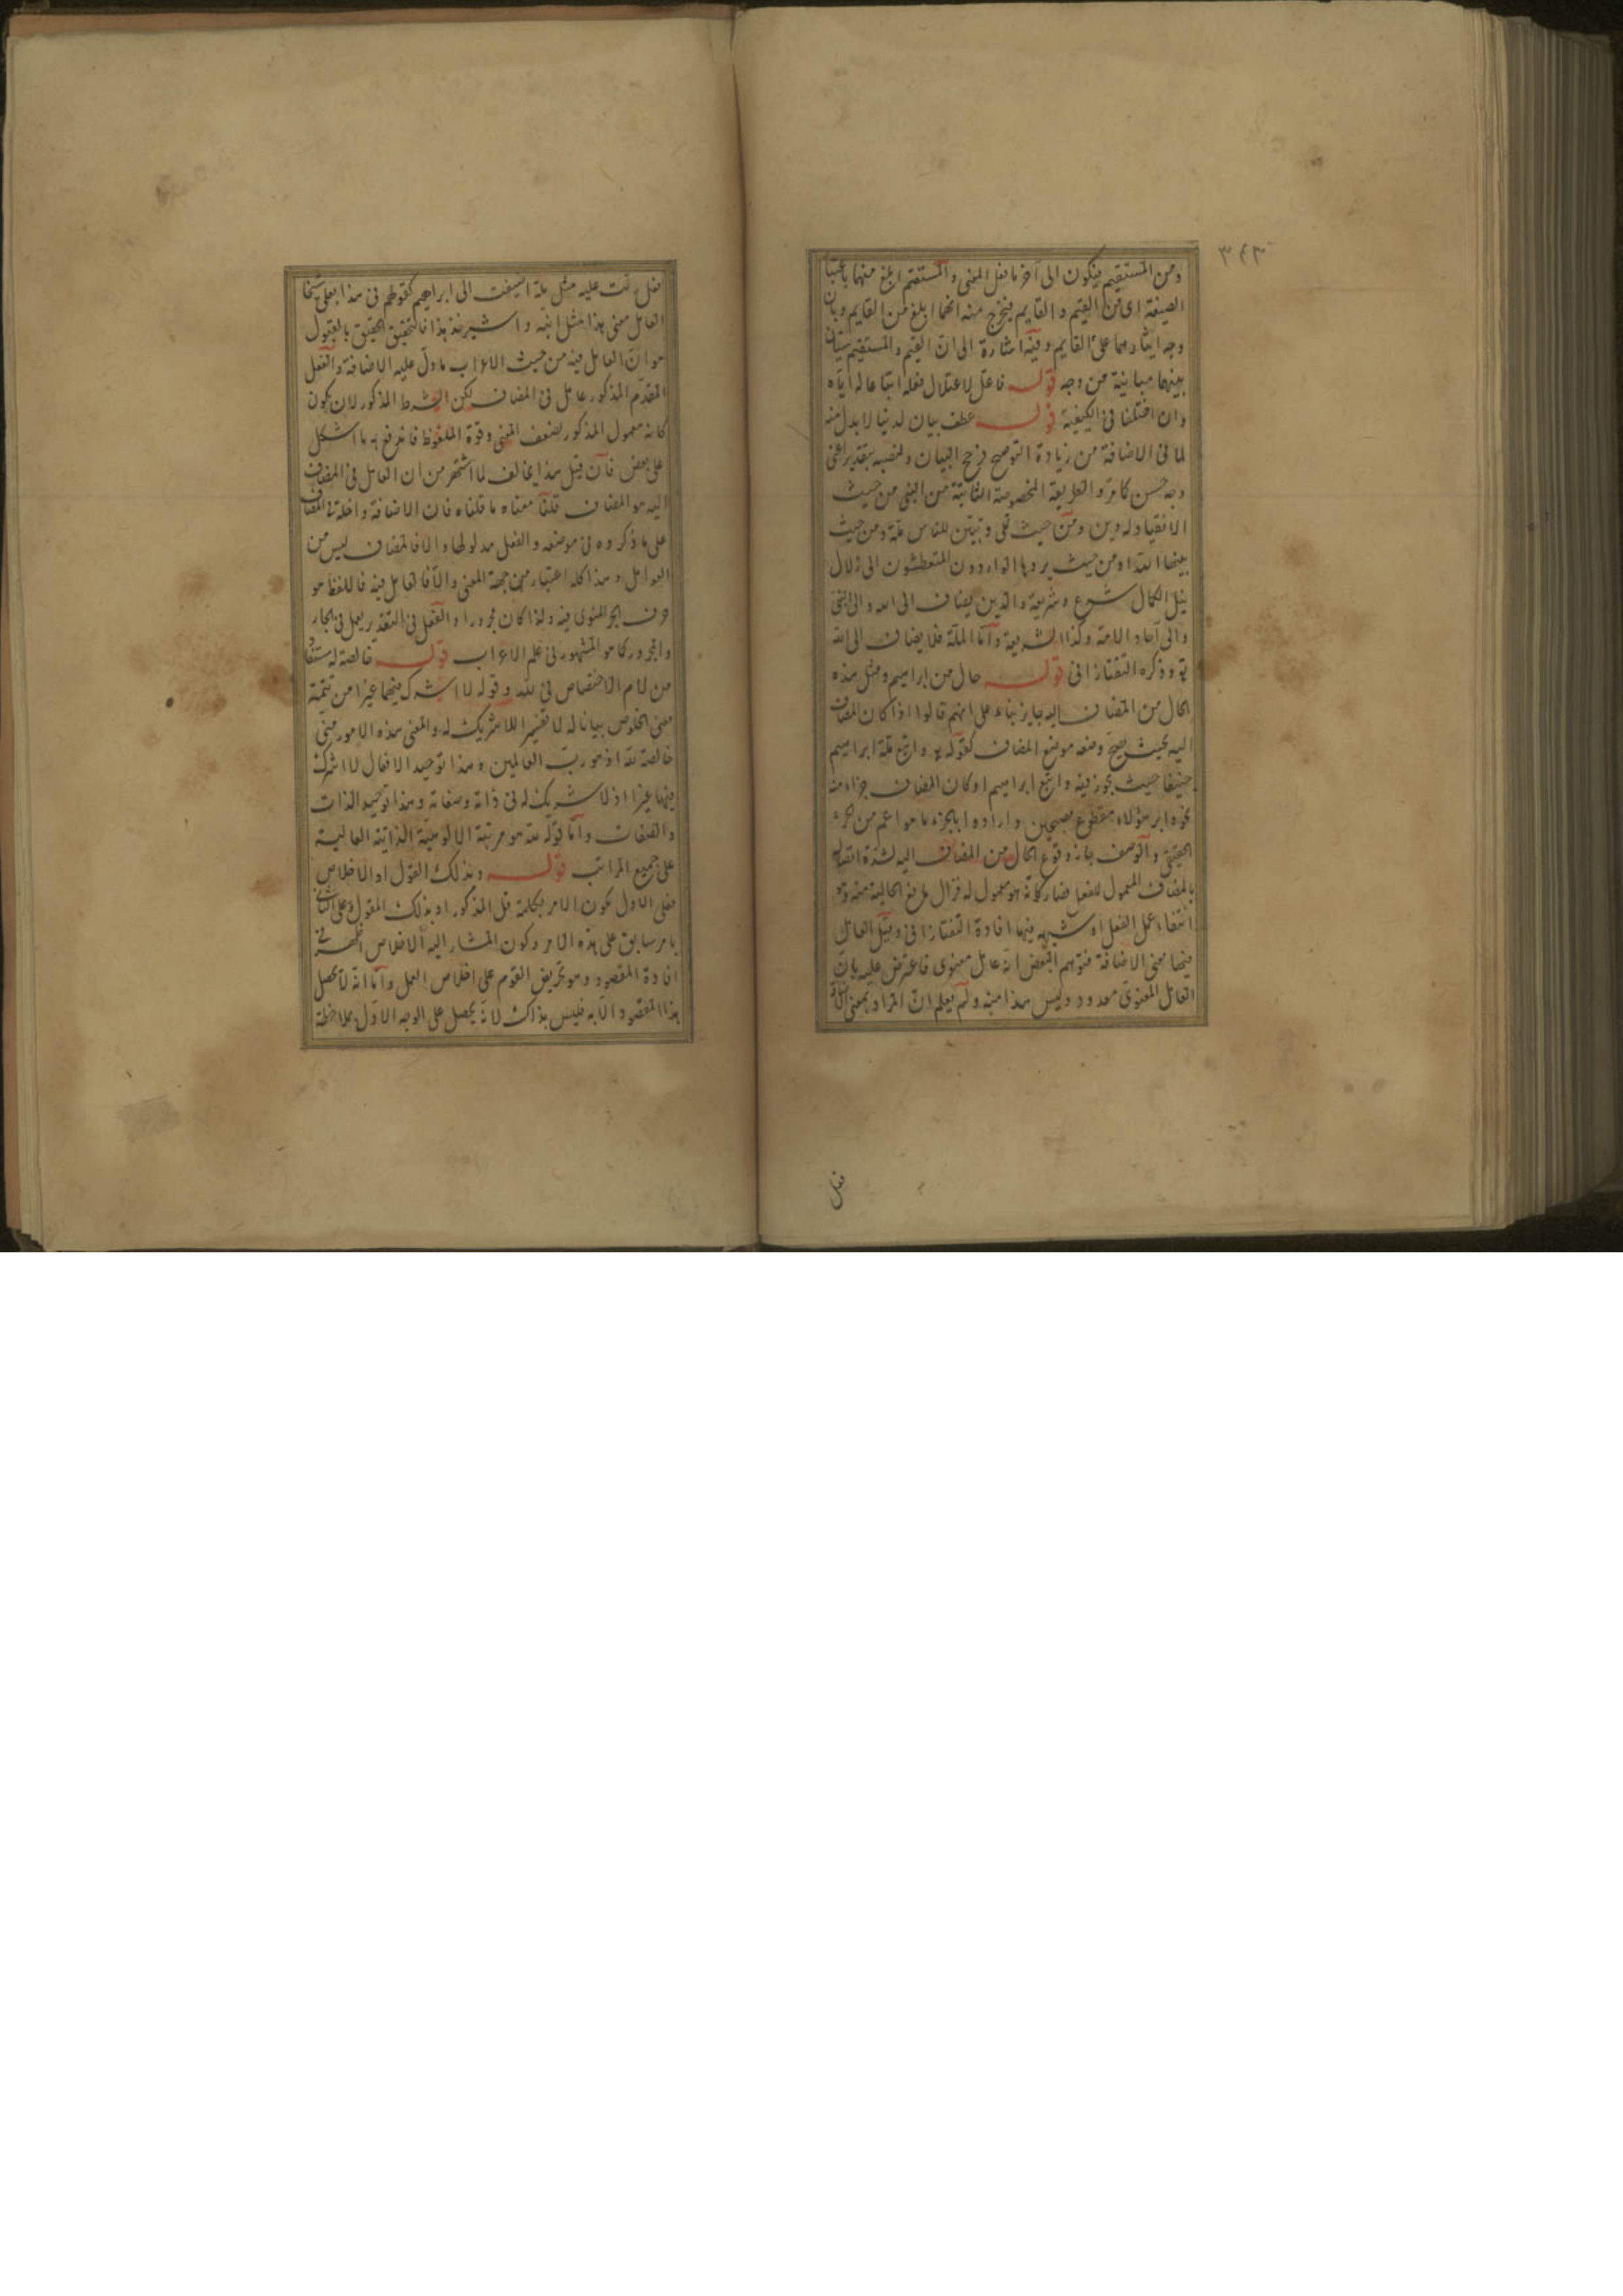 ٣٤٣
ومن المستقيم فيكون الى آخر ما فعل المعنى والمستقيم ابلغ منهما باعتبار
الصيغة اى من القيم والقايم فيخرج منه انهما ابلغ من القايم وبان
وجه ايثارهما على القايم وفيه اشارة الى ان القيم والمستقيم سيان
بينهما مباينة من وجه قوله فاعل لاعتلال فعله اتباعا له اياه
وان اختلفا فى الكيفية قوله عطف بيان لدينا لا بدل منه
لما فى الاضافة من زيادة التوضيح فرجح البيان ونصبه بتقدير اعنى
وجه حسن كامر والطريقة المخصوصة الثابتة من النبى من حيث
الانقياد له دين ومن حيث تملى وتبين للناس ملة ومن حيث
يردها الواردون المتعطشون الى زلال
نيل الكمال شرع وشريعة والدين يضاف الى الله والى النبى
والى آحاد الامة وكذا الشريعة واما الملة فلا يضاف الى الله
تع وذكره التفتازانى قوله حال من ابراهيم ومثل هذه
الحال من المضاف اليه جايز بناء على انهم قالوا اذا كان المضاف
اليه بحيث يصح وضعه موضع المضاف كقوله تع واتبع ملة ابراهيم
حنيفا حيث يجوز فيه واتبع ابراهيم او كان المضاف جزاء منه
نحو دابر هؤلاء مقطوع مصبحين وارادوا بالجزء ما هو اعم من الجزء
الحقيقى والوصف جاز وقوع الحال من المضاف اليه لشدة اتصاله
بالمضاف المعمول للفعل فصار كانه هو معمول له فزال مانع الحالية منه وهو
انتفاء عمل الفعل او شبهه فيها افادة التفتازانى وقيل العامل
فيها معنى الاضافة فتوهم البعض انه عامل معنوى فاعترض عليه بان
العامل المعنوى معدود وليس هذا منه ولم يعلم ان المراد بمعنى الاضافة
فعل
فعل دلت عليه مثل ملة اضيفت الى ابراهيم كقولهم فى هذا بعلى شيخا
العامل معنى هذا مثل انبه واشير نبذ هذا فالتحقيق الحقيق بالقبول
هو ان العامل فيه من حيث الاعراب ما دل عليه الاضافة والفعل
المقدم المذكور عامل فى المضاف لكن الشرط المذكور لان يكون
كانه معمول المذكور لضعف المعنى وقوة الملفوظ فاندفع به ما اشكل
على بعض فان قيل هذا يخالف لما اشتهر من ان العامل فى المضاف
اليه هو المضاف قلنا معناه ما قلناه فان الاضافة داخلة فى المضاف
على ما ذكروه فى موضعه والفعل مدلولها والا فالمضاف ليس من
العوامل وهذا كله اعتبار من جهة المعنى والا فالعامل فيه فاللفظ هو
حرف الجر المنوى فيه ولذا كان مجرورا والفعل فى التقدير يعمل فى الجار
والمجرور كما هو المشهور فى علم الاعراب قوله خالصة له مستفاد
من لام الاختصاص فى لله وقوله لا اشرك فيهما غيرا من تتمة
معنى الخلوص بيانا له لا تفسير اللا شريك له والمعنى هذه الامور منى
خالصة لله اذ هو رب العالمين وهذا توحيد الافعال لا اشرك
فيها غيرا اذ لا شريك له فى ذاته وصفاته وهذا توحيد الذات
والصفات واما قوله لله هو مرتبة الالوهية الذاتية العالية
على جميع المراتب قوله وبذلك القول او الاخلاص
فعلى الاول يكون الامر بكلمة قل المذكور او بذلك المقول وعلى الثانى
بامر سابق على هذه الامر وكون المشار اليه الاخلاص اظهر فى
افادة المقصود وهو تحريض القوم على اخلاص العمل واما انه لا يحصل
هذا المقصود الا به فليس بذاك لانه يحصل على الوجه الاول بملاحظة